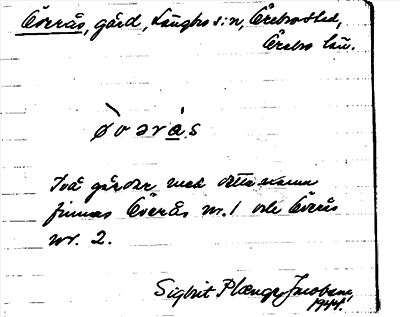 Överås, gård, Längbro s:n, Örebro hd,
Örebro län.
ø̀vərás
Två gårdar med detta namn
finnas Överås nr. 1 och Överås
nr. 2.
Sigbrit Plænge Jacobson,
1944.